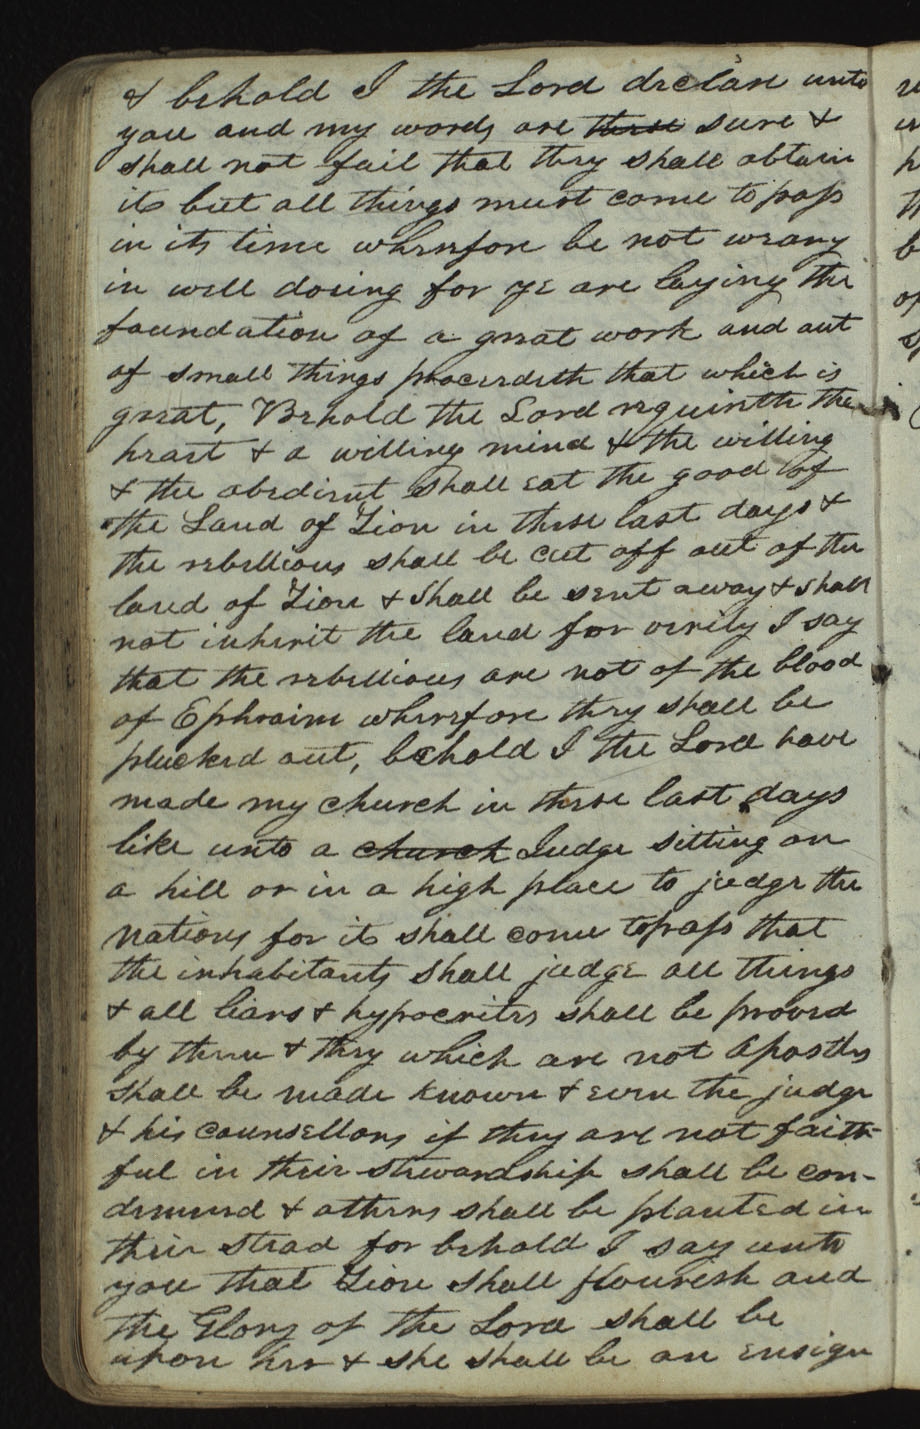 & behold I the Lord declare unto
you and my words are these sure &
shall not fail that they shall obtain
it but all things must come to pass
in its time wherefore be not weary
in well doing for ye are laying the
foundation of a great work and out
of small things proceedeth that which is
great, Behold the Lord requireth the
heart & a willing mind & the willing
& the obedient shall eat the good of
the Land of Zion in these last days &
the rebellious shall be cut off out of the
land of Zion & Shall be sent away & shall
not inherit the land for verily I say
that the rebellious are not of the blood
of Ephraim wherefore they shall be
plucked out, behold I the Lord have
made my church in these last days
like unto a church Judge sitting on
a hill or in a high place to judge the
Nations for it shall come topass that
the inhabitants shall judge all things
& all liars & hypocrites shall be proved
by them & they which are not Apostles
shall be made known & even the judge
& his counsellors if they are not faith-
ful in their stewardship shall be con-
demned & others shall be planted in
their stead for behold I say unto
you that Zion shall flourish and
the Glory of the Lord shall be
upon her & she shall be an ensign